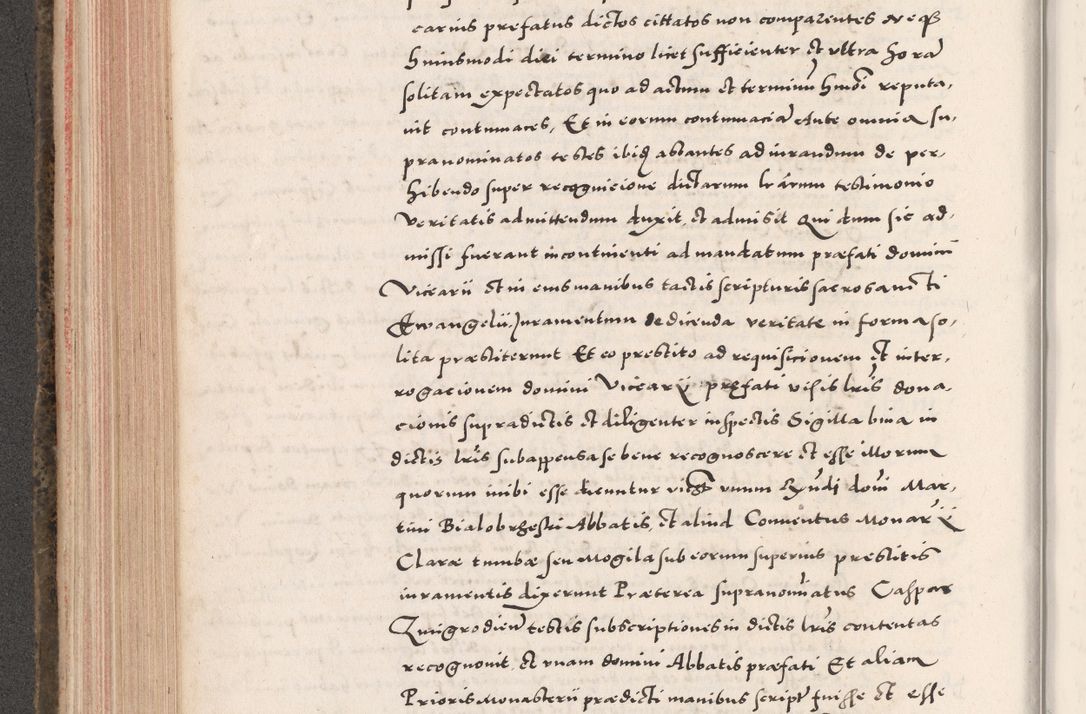 carius prefatus dictos cittatos non comparentes neq3
huiusmodi diei termino licet sufficienter et ultra hora
solitam expectatos quo ad actum et terminũ hmõi reputa,
uit contumaces, Et in eorum contumaciã Ante omnia su,
pranominatos testes ibid astantes ad iurandum de per,
hibendo super recognicione dictarum lrarum testimonio
Veritatis admittendum duxit, et admisit Qui dum sic ad,
missi fuerant incontinenti ad mandatum præfati domini
Vicearii et in eius manibus tactis scripturis sacrosancti
Ewangelii, Juramentum de dicenda veritate in forma so,
lita præstiterunt Et eo prestito ad requisicionem et inter,
rogacionem domini Vicearii præfati visis lris dona,
cionis supradictis et diligenter inspectis Sigilla bina in
dictis lris subappensa se bene recognoscere et esse illorum
quorum inibi esse dicuntur vidlt unum Rndi dom̃i Mar,
tini Bialobrzheski Abbatis, et aliud Conuentus Monarii
Claræ tumbæ seu Mogila sub eorum superius prestitis
iuramentis dixerunt Præterea supranomĩatus Caspar
Zmigrodien̄ testis subscriptiones in dictis lris contentas
recognouit et unam domini Abbatis præfati Et aliam
Prioris Monasterii prædicti manibus script fuisse et esse